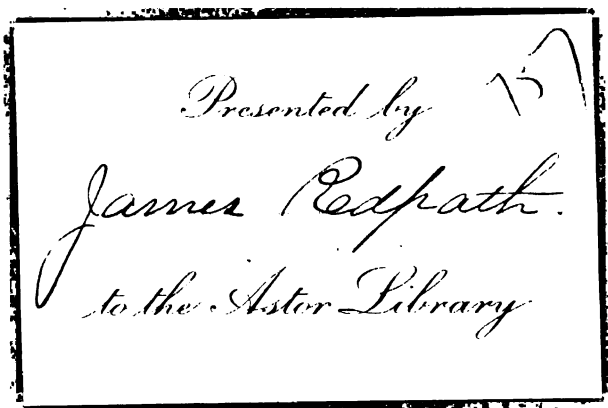 Presented by
James Redpath.
to the Astor Library